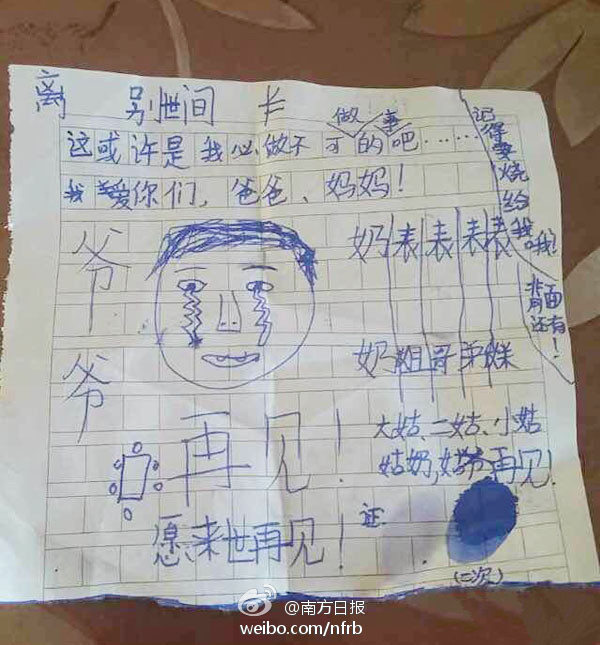 离别世间
做事
这或许是我必做不可的吧……
我爱你们,爸爸、妈妈!
记得要烧给我哦!
背面还有!
爷爷
奶奶 表姐 表哥 表弟 表妹
大姑、二姑、小姑
姑奶,姑爷再见!
再见!
愿来世再见!
证
(二次)
@南方日报
weibo.com/nfrb